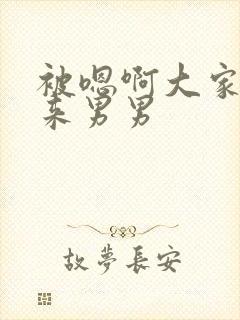 被嗯啊大家
来男男
故夢長安